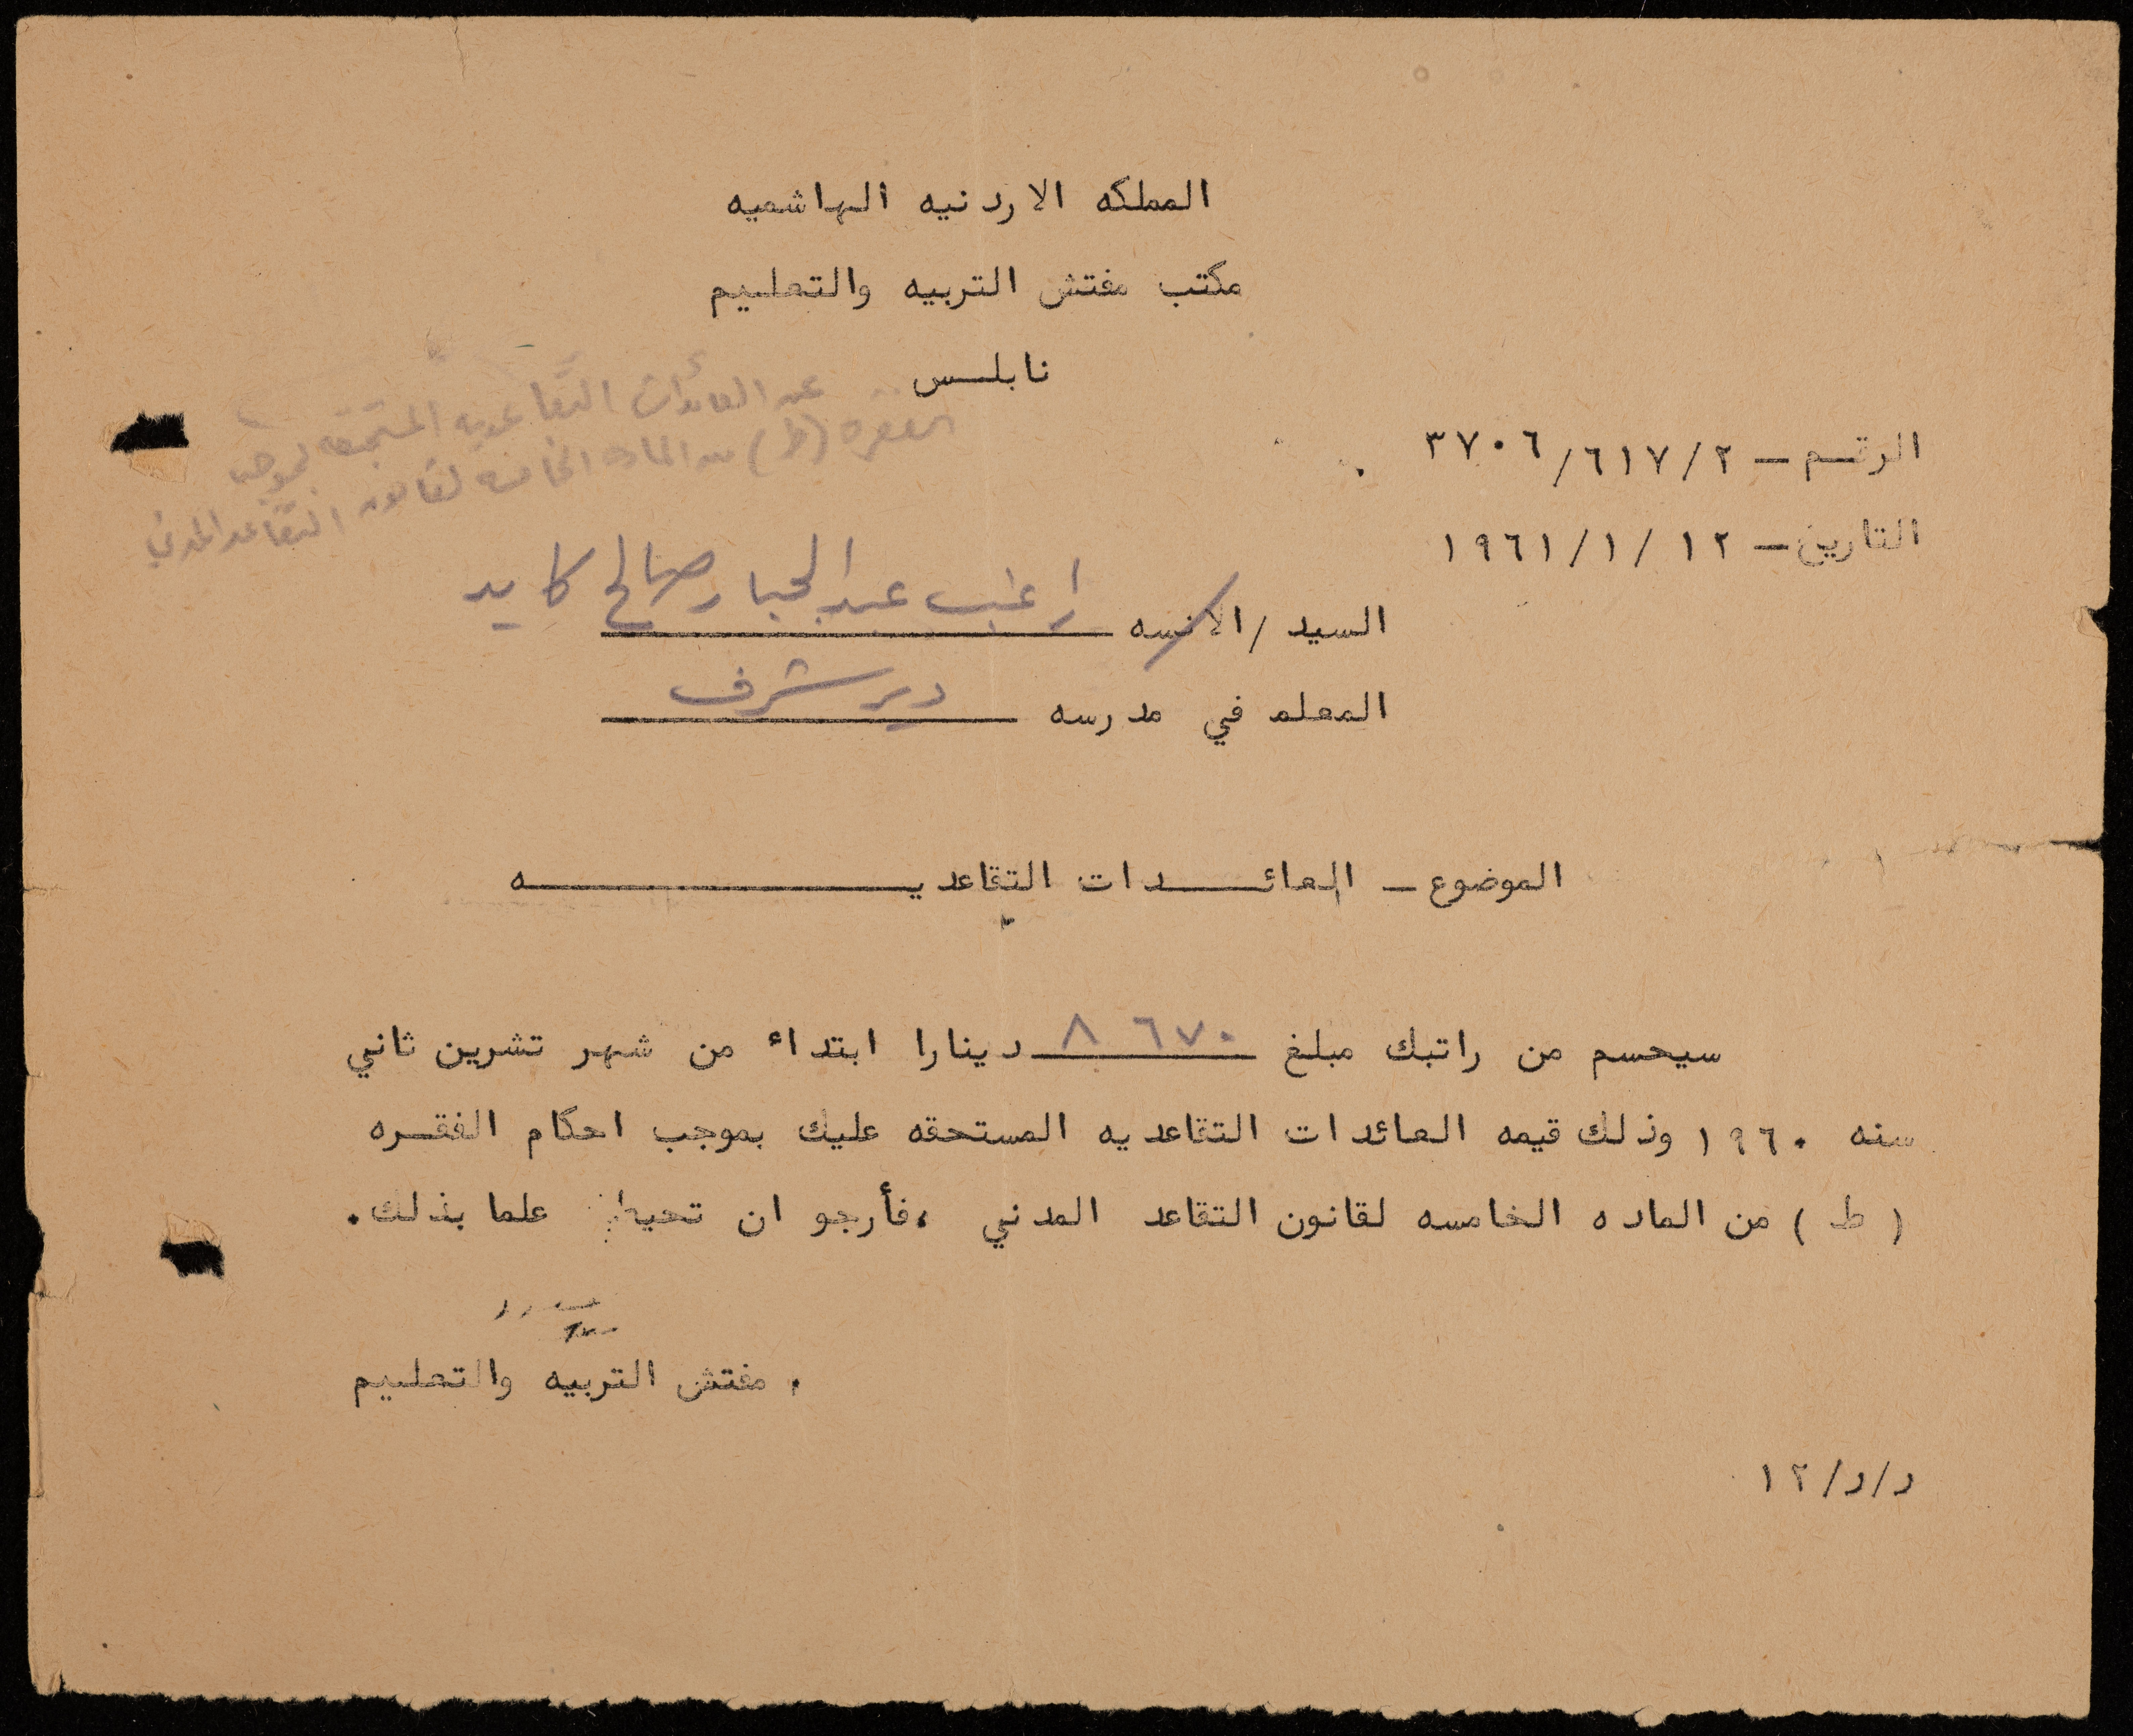 المملكه الاردنيه الهاشميه
مكتب مفتش التربيه والتعليم
نابلس
عن العائدات التقاعديه المستحقه بموجب
الفقره (ط) من الماده الخامسه لقانون التقاعد المدني
الرقم - ٣٧٠٦/٦١٧/٢
التاريخ - ١٩٦١/١/١٢
السيد / الانسه راغب عبد الجبار صالح كايد
المعلم في مدرسه دير شرف
الموضوع - العائدات التقاعديه
سيحسم من راتبك مبلغ ٨ ٦٧٠ دينارا ابتداء من شهر تشرين ثاني
سنه ١٩٦٠ وذلك قيمه العائدات التقاعديه المستحقه عليك بموجب احكام الفقره
( ط ) من الماده الخامسه لقانون التقاعد المدني ، فأرجو ان تحيط علما بذلك .
مفتش التربيه والتعليم
ر/ر/١٢